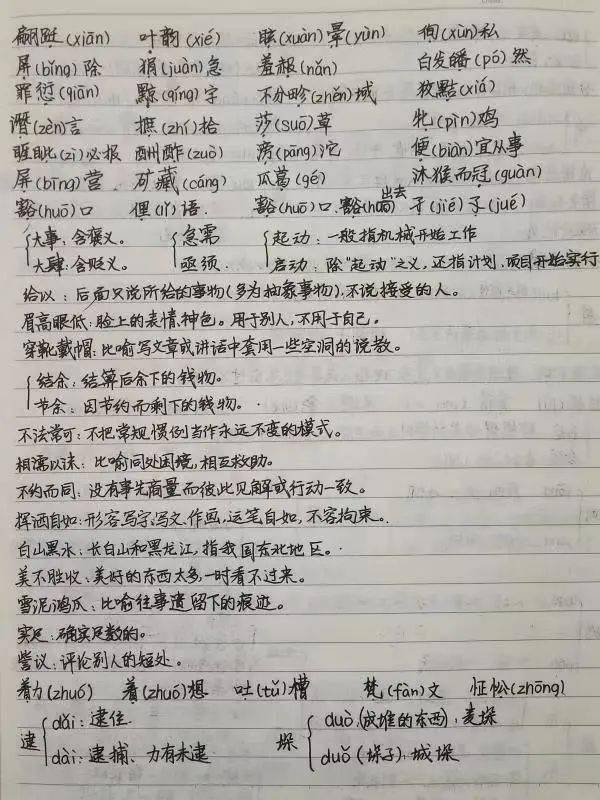 翩跹(xiān) 叶韵(xié) 眩(xuàn)晕(yùn) 徇(xùn)私
屏(bǐng)除 狷(juàn)急 羞赧(nǎn) 白发皤(pó)然
罪愆(qiān) 黥(qíng)字 不分畛(zhěn)域 狡黠(xiá)
谮(zèn)言 摭(zhí)拾 莎(suō)草 牝(pìn)鸡
睚眦(zì)必报 酬酢(zuò) 滂(pāng)沱 便(biàn)宜从事
屏(bīng)营 矿藏(cáng) 瓜葛(gé) 沐猴而冠(guàn)
豁(huō)口 俚(lǐ)语 豁(huō)口、豁(huō)出去 孑(jié)孓(jué)
大事:含褒义。 急需 起动:一般指机械开始工作
大肆:含贬义。 亟须 启动:除“起动”之义,还指计划、项目开始实行
给以:后面只说所给的事物(多为抽象事物),不说接受的人。
眉高眼低:脸上的表情、神色。用于别人,不用于自己。
穿靴戴帽:比喻写文章或讲话中套用一些空洞的说教。
结余:结算后余下的钱物。
节余:因节约而剩下的钱物。
不法常可:不把常规、惯例当作永远不变的模式。
相濡以沫:比喻同处困境,相互救助。
不约而同:没有事先商量而彼此见解或行动一致。
挥洒自如:形容写字、写文、作画,运笔自如,不容拘束。
白山黑水:长白山和黑龙江,指我国东北地区。
美不胜收:美好的东西太多,一时看不过来。
雪泥鸿爪:比喻往事遗留下的痕迹。
实足:确实足数的。
訾议:评论别人的短处。
着力(zhuó) 着(zhuó)想 吐(tǔ)槽 梵(fàn)文 怔忪(zhōng)
逮 dǎi:逮住 垛 duò(成堆的东西),麦垛
dài:逮捕、力有未逮 duǒ(垛子):城垛